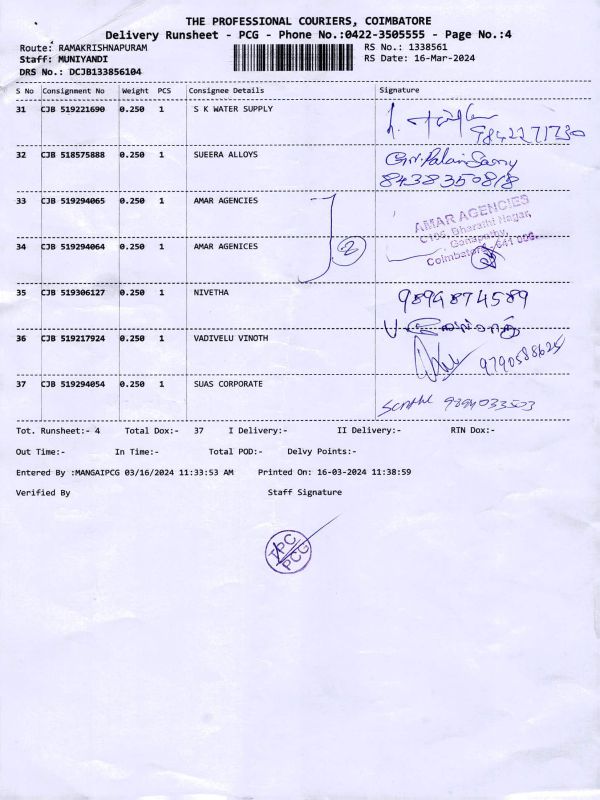 THE PROFESSIONAL COURIERS, COIMBATORE
Delivery Runsheet - PCG - Phone No.:0422-3505555 - Page No.:4
Route: RAMAKRISHNAPURAM RS No.: 1338561
Staff: MUNIYANDI RS Date: 16-Mar-2024
DRS No.: DCJB133856104
S No Consignment No Weight PCS Consignee Details Signature
31 CJB 519221690 0.250 1 S K WATER SUPPLY
9842271730
32 CJB 518575888 0.250 1 SUEERA ALLOYS
8438350818
33 CJB 519294065 0.250 1 AMAR AGENCIES
AMAR AGENCIES
Bharathi Nagar,
Ganapathy,
Coimbatore - 641 006.
34 CJB 519294064 0.250 1 AMAR AGENICES
2
35 CJB 519306127 0.250 1 NIVETHA 9894874589
36 CJB 519217924 0.250 1 VADIVELU VINOTH
9790588625
37 CJB 519294054 0.250 1 SUAS CORPORATE
9894033503
Tot. Runsheet:- 4 Total Dox:- 37 I Delivery:- II Delivery:- RTN Dox:-
Out Time:- In Time:- Total POD:- Delvy Points:-
Entered By :MANGAIPCG 03/16/2024 11:33:53 AM Printed On: 16-03-2024 11:38:59
Verified By Staff Signature
TPC
PCG